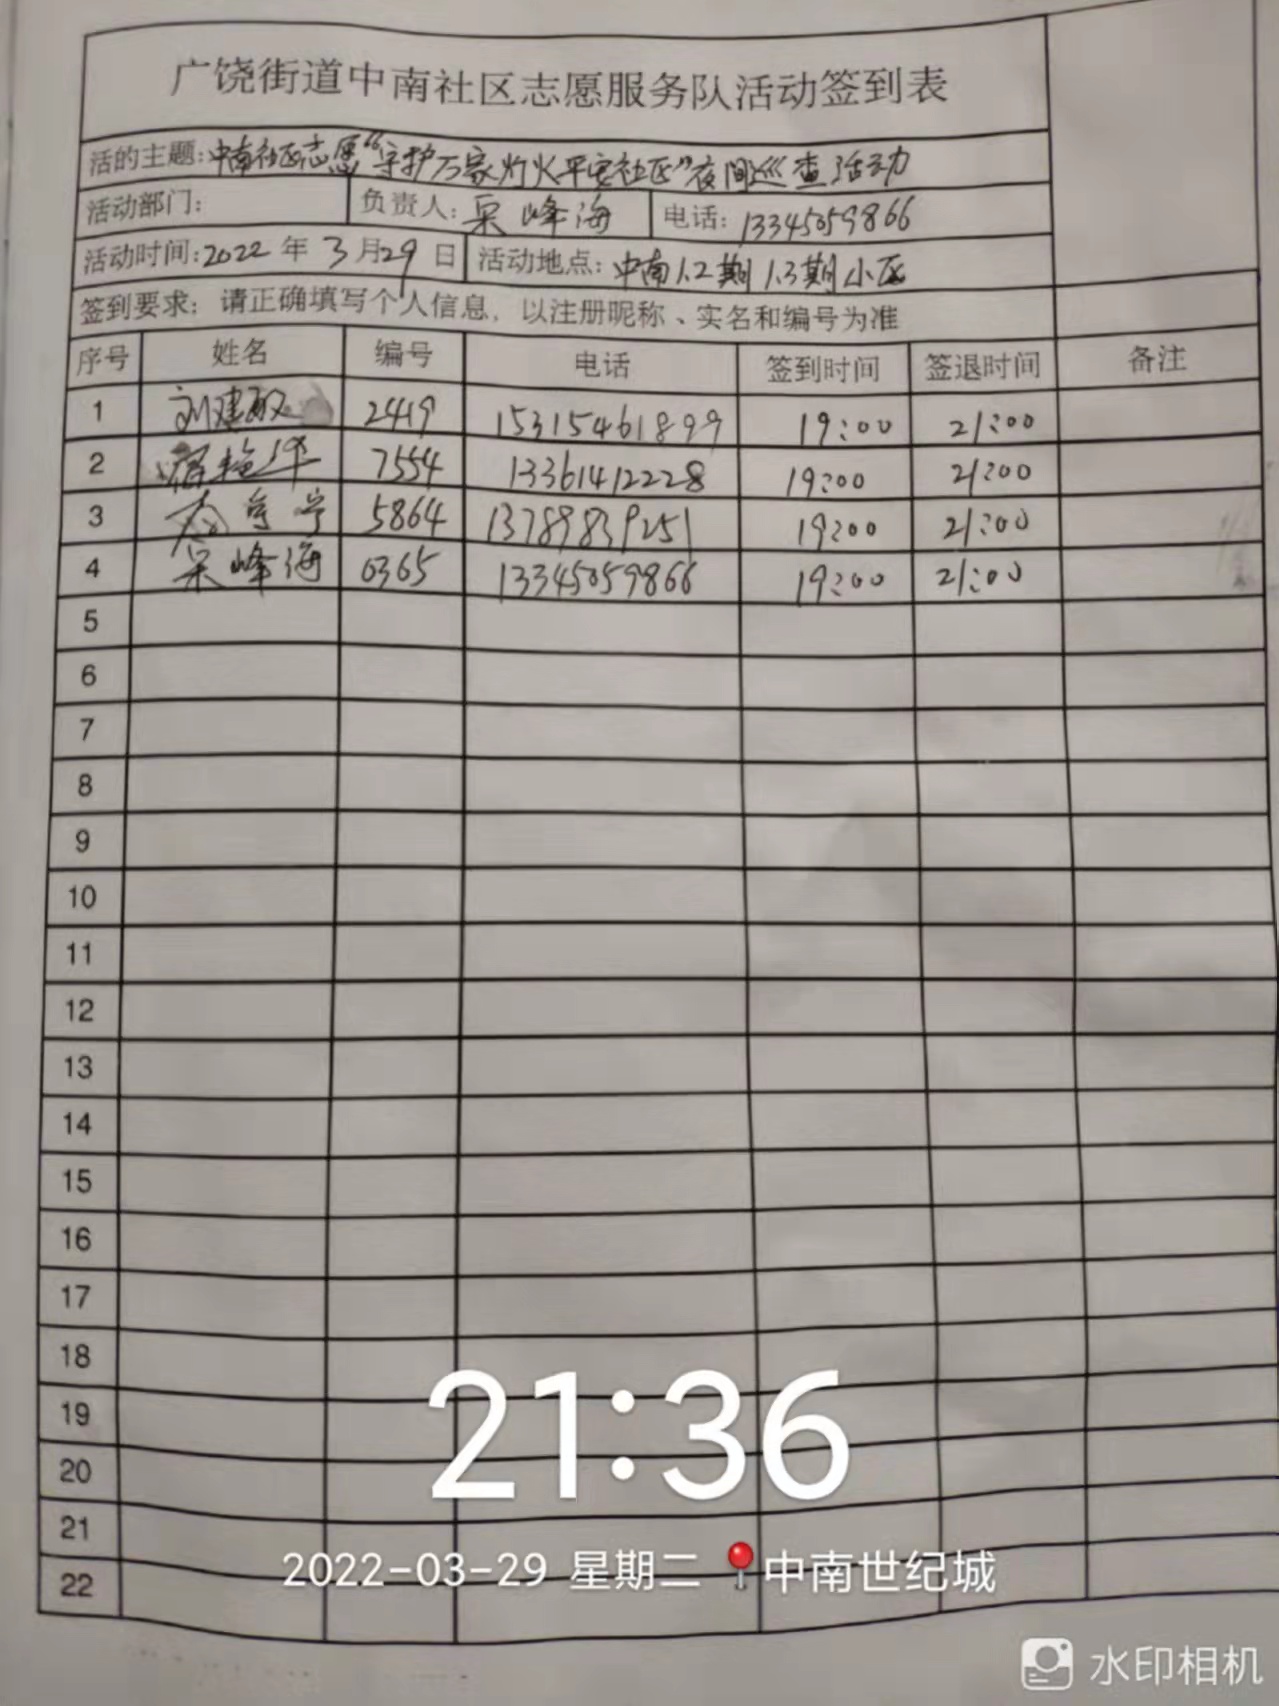 广饶街道中南社区志愿服务队活动签到表
活的主题:中南社区志愿“守护万家灯火平安社区”夜间巡查活动
活动部门: 负责人:呆峰海 电话:13345059866
活动时间:2022年3月29日 活动地点:中南1.2期1.3期小区
签到要求: 请正确填写个人信息, 以注册昵称、实名和编号为准
序号 姓名 编号 电话 签到时间 签退时间 备注
1 刘建敏 2419 15315461899 19:00 21:00
2 艳华 7554 13361412228 19:00 21:00
3 5864 13789839251 19:00 21:00
4 呆峰海 0365 13345059866 19:00 21:00
5
6
7
8
9
10
11
12
13
14
15
16
17
18
19
20
21
22
21:36
2022-03-29 星期二 中南世纪城
水印相机